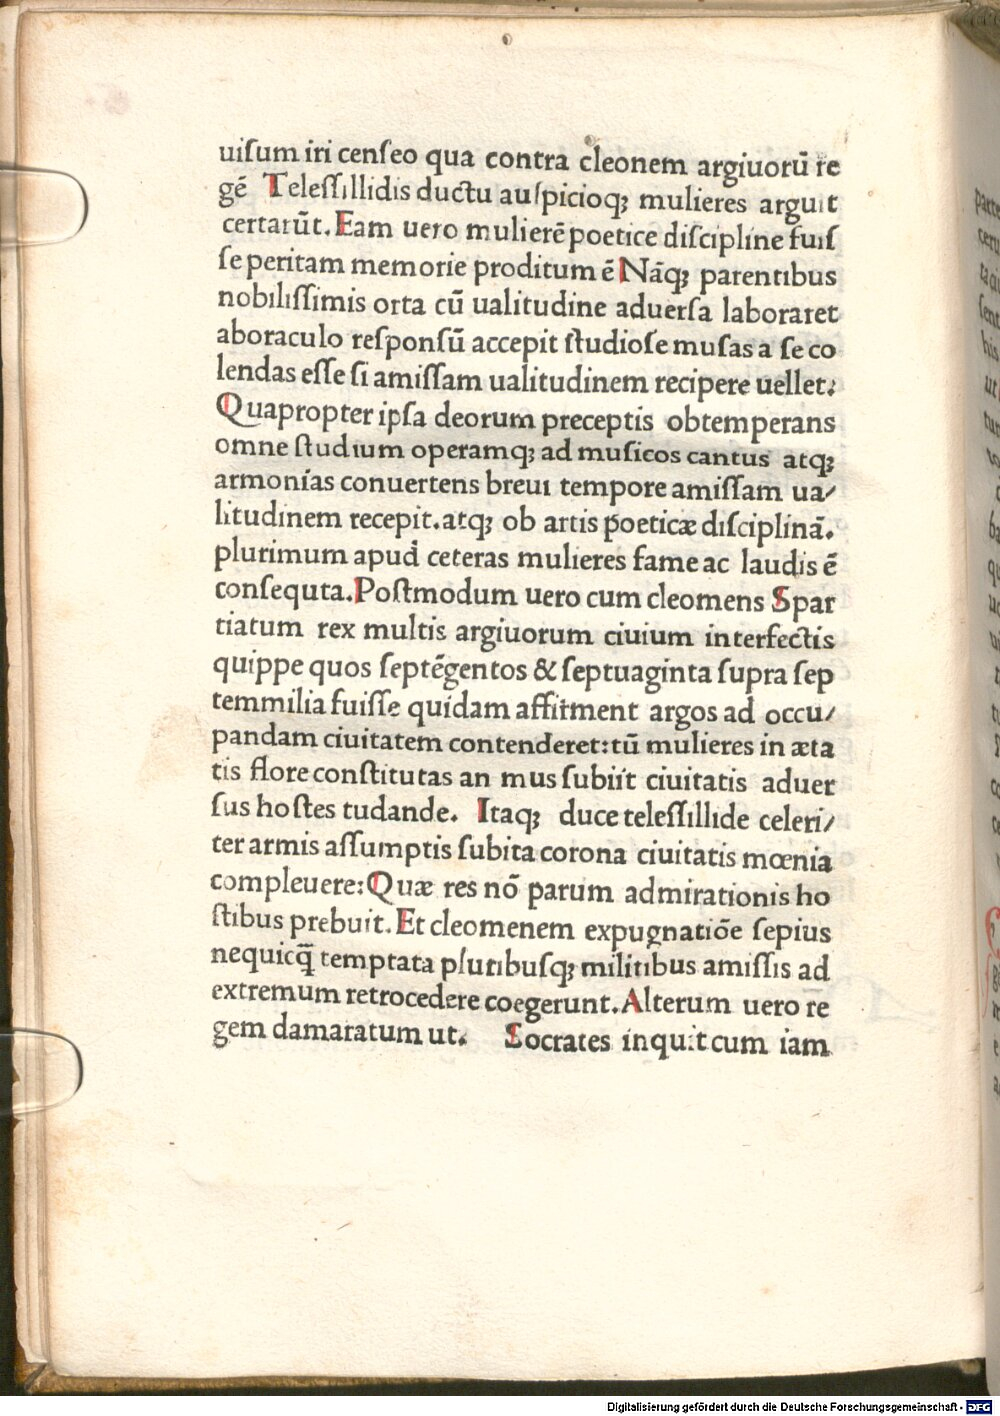 uiſum iri cenſeo qua contra cleonem argiuorū re
gē Teleſſillidis ductu auſpicioqꝫ mulieres arguit
certarūt. Eam uero mulierē poetice diſcipline fuiſ
ſe peritam memorie proditum ē Nāqꝫ parentibus
nobiliſſimis orta cū ualitudine aduerſa laboraret
aboraculo reſponſū accepit ſtudioſe muſas a ſe co
lendas eſſe ſi amiſſam ualitudinem recipere uellet:
Quapropter ipſa deorum preceptis obtemperans
omne ſtudium operamqꝫ ad muſicos cantus atqꝫ
armonias conuertens breui tempore amiſſam ua/
litudinem recepit. atqꝫ ob artis poeticæ diſciplinā.
plurimum apud ceteras mulieres fame ac laudis ē
conſequta. Poſtmodum uero cum cleomens Spar
tiatum rex multis argiuorum ciuium interfectis
quippe quos ſeptēgentos & ſeptuaginta ſupra ſep
temmilia fuiſſe quidam affirment argos ad occu/
pandam ciuitatem contenderet: tū mulieres in æta
tis flore conſtitutas an mus ſubiit ciuitatis aduer
ſus hoſtes tudande. Itaqꝫ duce teleſſillide celeri/
ter armis aſſumptis ſubita corona ciuitatis mœnia
compleuere: Quæ res nō parum admirationis ho
ſtibus prebuit. Et cleomenem expugnatiōe ſepius
nequicq̄ temptata pluribuſqꝫ militibus amiſſis ad
extremum retrocedere coegerunt. Alterum uero re
gem damaratum ut. Socrates inquit cum iam
Digitalisierung gefördert durch die Deutsche Forschungsgemeinschaft - DFG